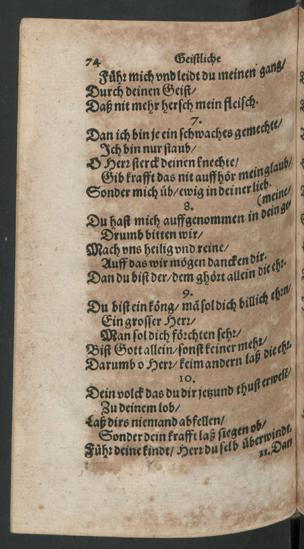 74 Geistliche
Führ mich vnd leidt du meinen gang/
Durch deinen Geist/
Daß nit mehr hersch mein fleisch.
7.
Dan ich bin je ein schwaches gemechte/
Ich bin nur staub/
O Herr sterck deinen knechte/
Gib krafft das nit auffhör mein glaub/
Sonder mich üb/ ewig in deiner lieb.
8. (meine/
Du hast mich auffgenommen in dein ge
Drumb bitten wir/
Mach vns heilig vnd reine/
Auff das wir mögen dancken dir.
Dan du bist der/ dem ghört allein die ehr.
9.
Du bist ein köng/ mā sol dich billich ehrn/
Ein grosser Herr/
Man sol dich förchten sehr/
Bist Gott allein/ sonst keiner mehr/
Darumb o Herr/ keim andern laß die ehr.
10.
Dein volck das du dir jetzund thust erwelē/
Zu deinem lob/
Laß dirs niemand abfellen/
Sonder dein krafft laß siegen ob/
Führ deine kindt/ Herr du selb überwindt.
11. Dan